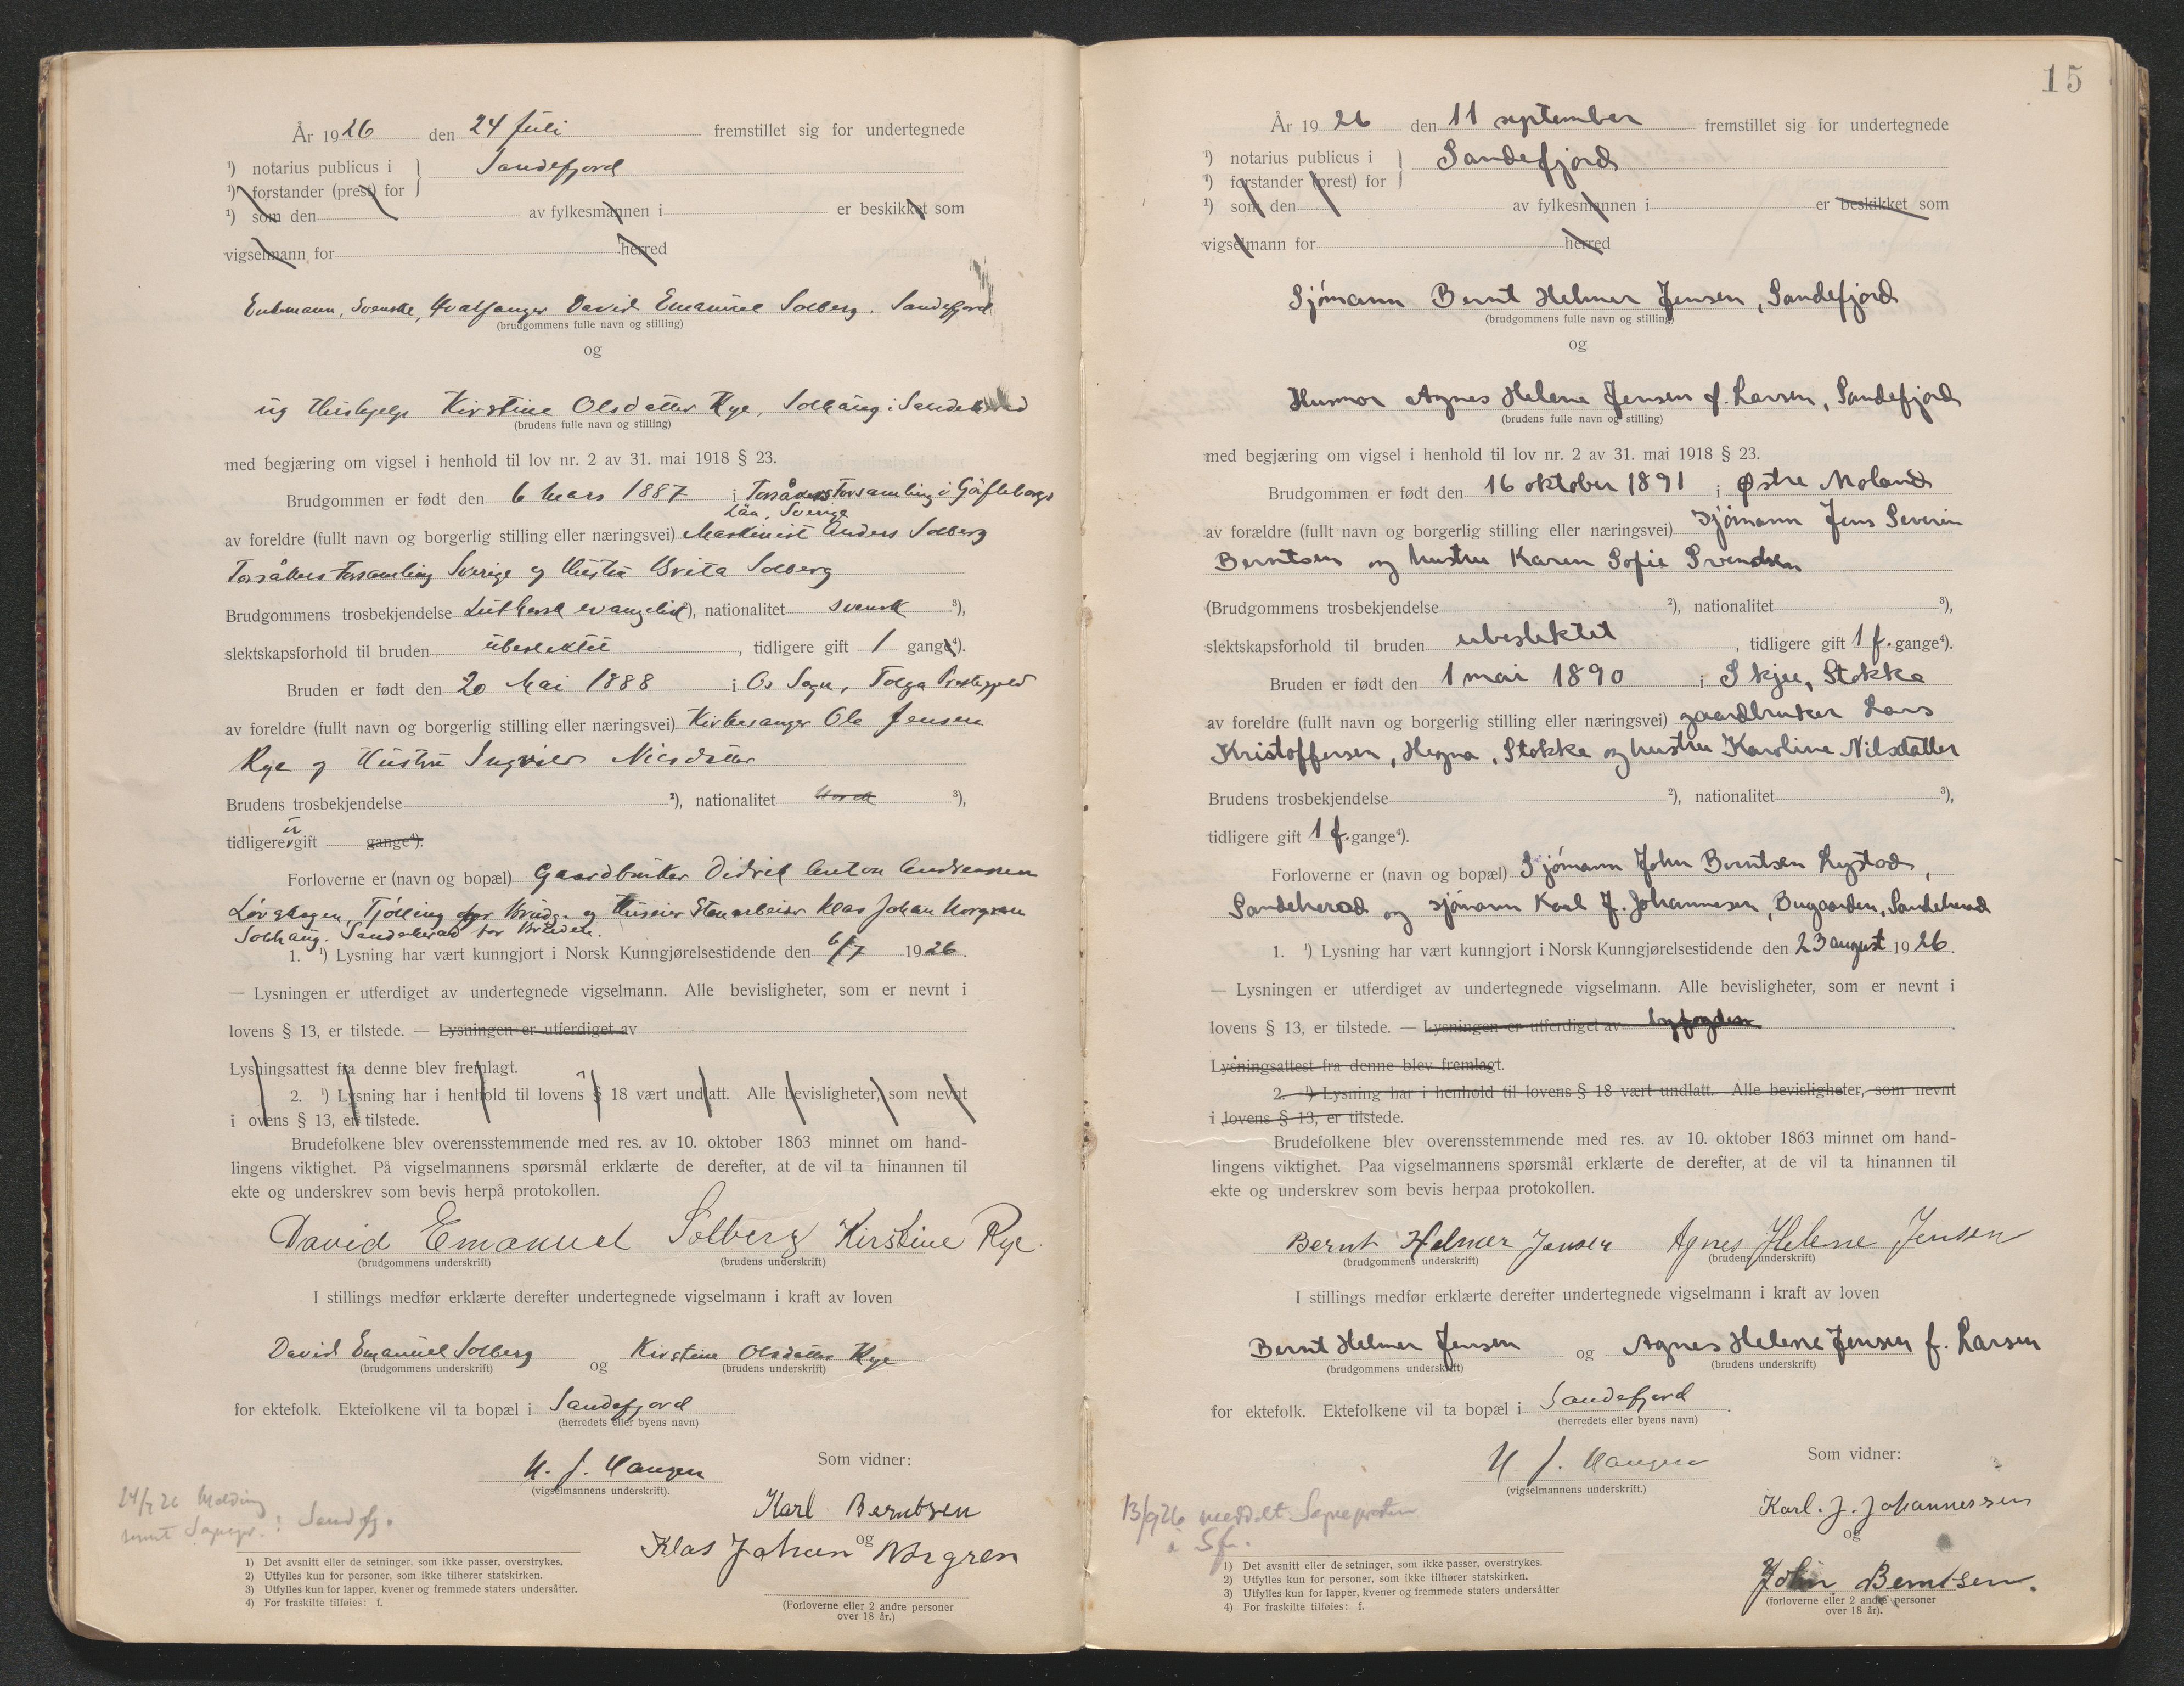 År 1926 den 24 Juli fremstillet sig for undertegnede
¹) notarius publicus i } Sandefjord
¹) forstander (prest) for
¹) som den av fylkesmannen i er beskikket som
vigselmann for herred
Enkemann, Svenske, Hvalfanger David Emanuel Solberg. Sandefjord
(brudgommens fulle navn og stilling)
og
ug Hushjelp Kirstine Olsdatter Rye, Solhaug i Sandeherred
(brudens fulle navn og stilling)
med begjæring om vigsel i henhold til lov nr. 2 av 31. mai 1918 § 23.
Brudgommen er født den 6 Mars 1887 i Torsåkers Forsamling i Gäfleborgs
Län, Sverige
av foreldre (fullt navn og borgerlig stilling eller næringsvei) Maskinist Anders Solberg
Torsåkers Forsamling Sverige og Hustru Brita Solberg
Brudgommens trosbekjendelse Luthersk evangelisk ²), nationalitet svensk ³),
slektskapsforhold til bruden ubeslektet, tidligere gift 1 gange⁴).
Bruden er født den 20 Mai 1888 i Os Sogn, Tolga Prestegjeld
av foreldre (fullt navn og borgerlig stilling eller næringsvei) Kirkesanger Ole Jensen
Rye og Hustru Ingeborg Nilsdatter
Brudens trosbekjendelse ²), nationalitet norsk ³),
tidligere u gift gange⁴).
Forloverne er (navn og bopæl) Gaardbruker Didrik Anton Andreassen
Løvskogen, Tjølling for Brudg. og Huseier Stenarbeider Klas Johan Norgren
Solhaug. Sandeherad for Bruden.
1. ¹) Lysning har vært kunngjort i Norsk Kunngjørelsestidende den 6/7 1926.
— Lysningen er utferdiget av undertegnede vigselmann. Alle bevisligheter, som er nevnt i
lovens § 13, er tilstede. — Lysningen er utferdiget av
Lysningsattest fra denne blev fremlagt.
2. ¹) Lysning har i henhold til lovens § 18 vært undlatt. Alle bevisligheter, som nevnt
i ovens § 13, er tilstede.
Brudefolkene blev overensstemmende med res. av 10. oktober 1863 minnet om hand-
lingens viktighet. På vigselmannens spørsmål erklærte de derefter, at de vil ta hinannen til
ekte og underskrev som bevis herpå protokollen.
David Emanuel Solberg Kirstine Rye.
(brudgommens underskrift) (brudens underskrift)
I stillings medfør erklærte derefter undertegnede vigselmann i kraft av loven
David Emanuel Solberg og Kirstine Olsdatter Rye
(brudgommens underskrift) (brudens underskrift)
for ektefolk. Ektefolkene vil ta bopæl i Sandefjord
(herredets eller byens navn)
Som vidner:
(vigselmannens underskrift).
Karl Berntsen
og
Klas Johan Norgren
24/7 26 Melding
sendt Sognepr. i Sandefj.
(Forloverne eller 2 andre personer
over 18 år.)
1) Det avsnitt eller de setninger, som ikke passer, overstrykes.
2) Utfylles kun for personer, som ikke tilhører statskirken.
3) Utfylles kun for lapper, kvener og fremmede staters undersåtter.
4) For fraskilte tilføies: f.
15
År 1926 den 11 september fremstillet sig for undertegnede
¹) notarius publicus i } Sandefjord
¹) forstander (prest) for
¹) som den av fylkesmannen i er beskikket som
vigselmann for herred
Sjömann Bernt Helmer Jensen, Sandefjord
(brudgommens fulle navn og stilling)
og
Husmor Agnes Helene Jensen f. Larsen, Sandefjord
(brudens fulle navn og stilling)
med begjæring om vigsel i henhold til lov nr. 2 av 31. mai 1918 § 23.
Brudgommen er født den 16 oktober 1891 i Østre Moland
av forældre (fullt navn og borgerlig stilling eller næringsvei) Sjömann Jens Severin
Berntsen og hustru Karen Sofie Svendsen
(Brudgommens trosbekjendelse ²), nationalitet ³),
slektskapsforhold til bruden ubeslektet, tidligere gift 1 f. gange⁴).
Bruden er født den 1 mai 1890 i Skjee, Stokke
av foreldre (fullt navn og borgerlig stilling eller næringsvei) gaardbruker Lars
Kristoffersen, Hegna, Stokke og hustru Karoline Nilsdatter
Brudens trosbekjendelse ²), nationalitet ³),
tidligere gift 1 f. gange⁴).
Forloverne er (navn og bopæl) Sjömann John Berntsen Lystad,
Sandeherad og sjömann Karl J. Johannesen, Bugaarden, Sandeherad
1. ¹) Lysning har vært kunngjort i Norsk Kunngjørelsestidende den 23 august 1926.
— Lysningen er utferdiget av undertegnede vigselmann. Alle bevisligheter, som er nevnt i
lovens § 13, er tilstede. — Lysningen er utferdiget av byfogden
Lysningsattest fra denne blev fremlagt.
2. ¹) Lysning har i henhold til lovens § 18 vært undlatt. Alle bevisligheter, som nevnt
i lovens § 13, er tilstede.
Brudefolkene blev overensstemmende med res. av 10. oktober 1863 minnet om hand-
lingens viktighet. Paa vigselmannens spørsmål erklærte de derefter, at de vil ta hinannen til
ekte og underskrev som bevis herpaa protokollen.
Bernt Helmer Jensen Agnes Helene Jensen
(brudgommens underskrift) (brudens underskrift)
I stillings medfør erklærte derefter undertegnede vigselmann i kraft av loven
Bernt Helmer Jensen og Agnes Helene Jensen f. Larsen
(brudgommens underskrift) (brudens underskrift)
for ektefolk. Ektefolkene vil ta bopæl i Sandefjord.
(herredets eller byens navn)
Som vidner:
(vigselmannens underskrift.)
Karl. J. Johannessen
og
John Berntsen.
13/9 26 meddelt Sognepresten
i Sfj.
(forloverne eller 2 andre personer
over 18 år).
1) Det avsnitt eller de setninger, som ikke passer, overstrykes.
2) Utfylles kun for personer, som ikke tilhører statskirken.
3) Utfylles kun for lapper, kvener og fremmede staters undersåtter
4) For fraskilte tilføies: f.